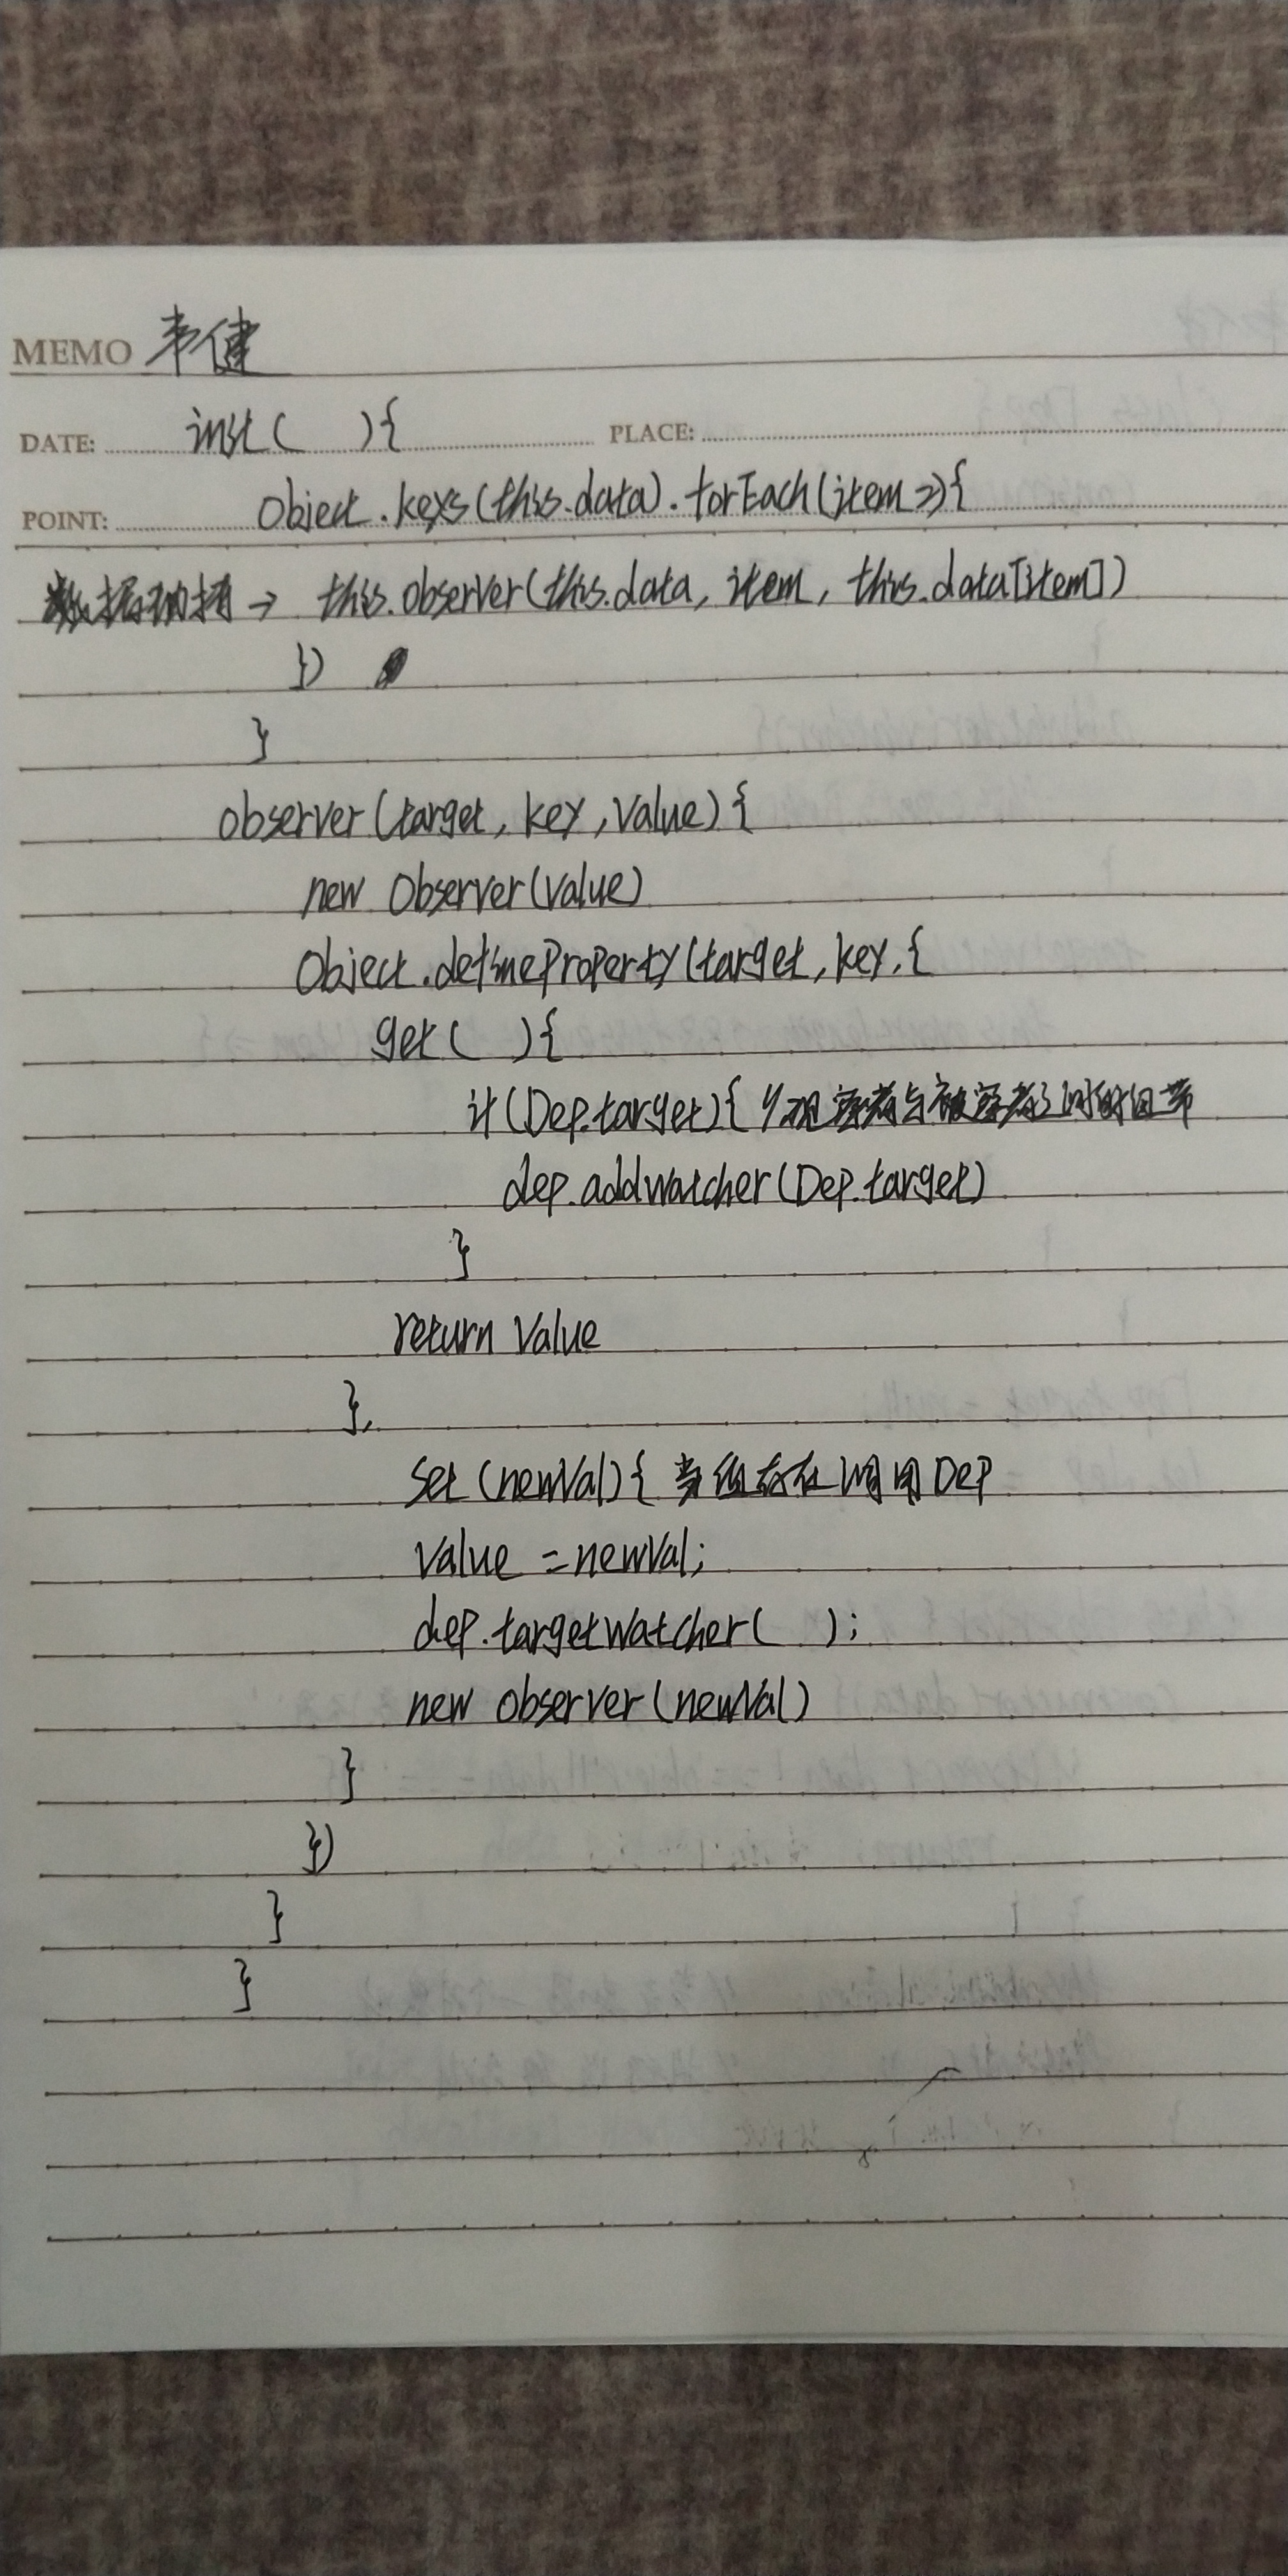 MEMO 韦健
DATE: init( ){ PLACE:
POINT: Object.keys(this.data).forEach(item=>{
数据劫持→ this.observer(this.data, item, this.data[item])
})
}
observer(target, key, value){
new Observer(value)
Object.defineProperty(target, key, {
get( ){
if(Dep.target){ //观察者与被察者之间的
dep.addwatcher(Dep.target)
}
return value
},
set(newVal){ 当值存在调用Dep
value =newVal;
dep.targetwatcher( );
new observer(newVal)
}
})
}
}